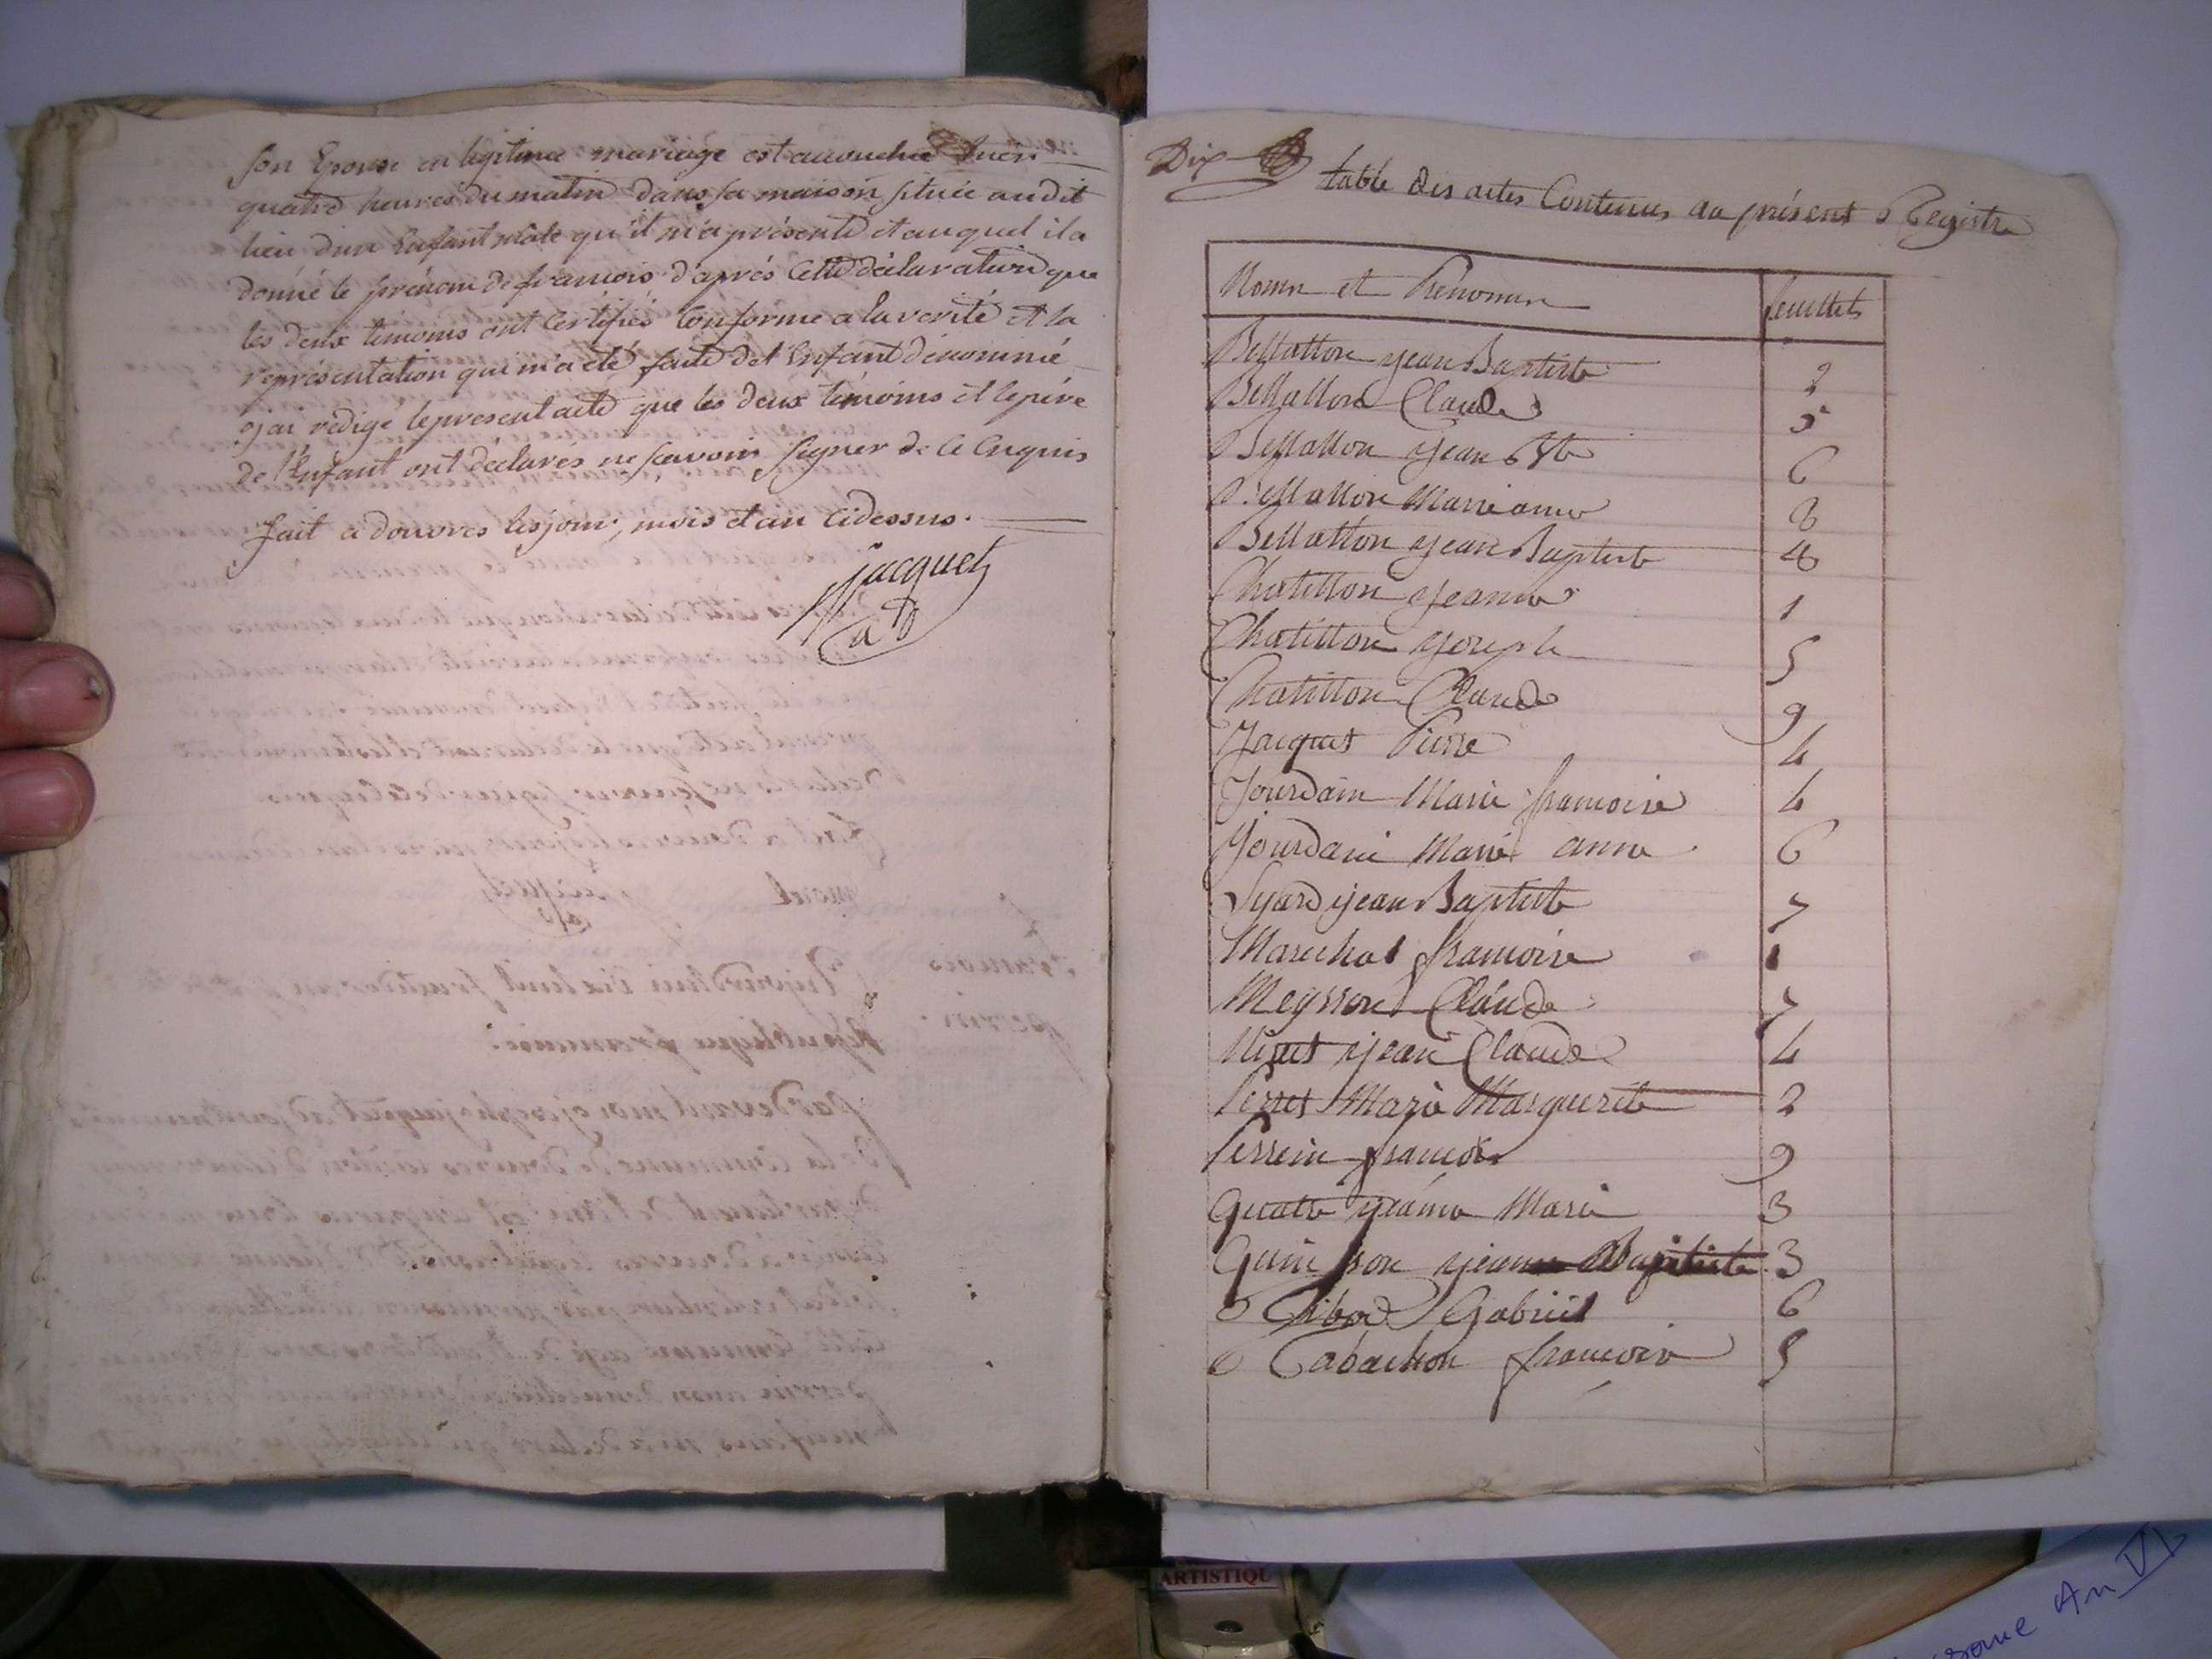 son Epouse en legitime mariage est accouchée hier
quatre heures du matin dans sa maison située audit
lieu d'un Enfant mâle qu'il m'a présenté et auquel il a
donné le prénom de francois d'aprés Cette déclaration que
les deux témoins ont Certifiés Conforme a la verité et la
représentation qui m'a été faite de l'Enfant dénommé
j'ai rédigé le present acte que les deux témoins et le pére
de l'Enfant ont déclarés ne scavoir signer de Ce Enquis
fait a douvres les jour, mois et an Cidessus.
Jacquet
Dix
table des actes Contenus au présent Registre
Noms et Prenoms feuillets
Bellatton jean Baptiste 2
Bellatton Claude 5
Bellatton jean Bte 6
Bellatton Marie anne 8
Bellatton jean Baptiste 4
Chatillon jeanne 1
Chatillon joseph 5
Chatillon Claude 9
Jacquet Pierre 4
Jourdain Marie francoise 4
Jourdain Marie anne 6
Lyard jean Baptiste 7
Marechal francoise 1
Meysson Claude 7
jean Claude 4
Perret Marie Marguerite 2
Perrin francois 9
Quatre jeanne Marie 3
Quinson jeanne Baptiste 3
Ribod Gabriel 6
Tabachon francois 5
ARTISTIQU
An VI